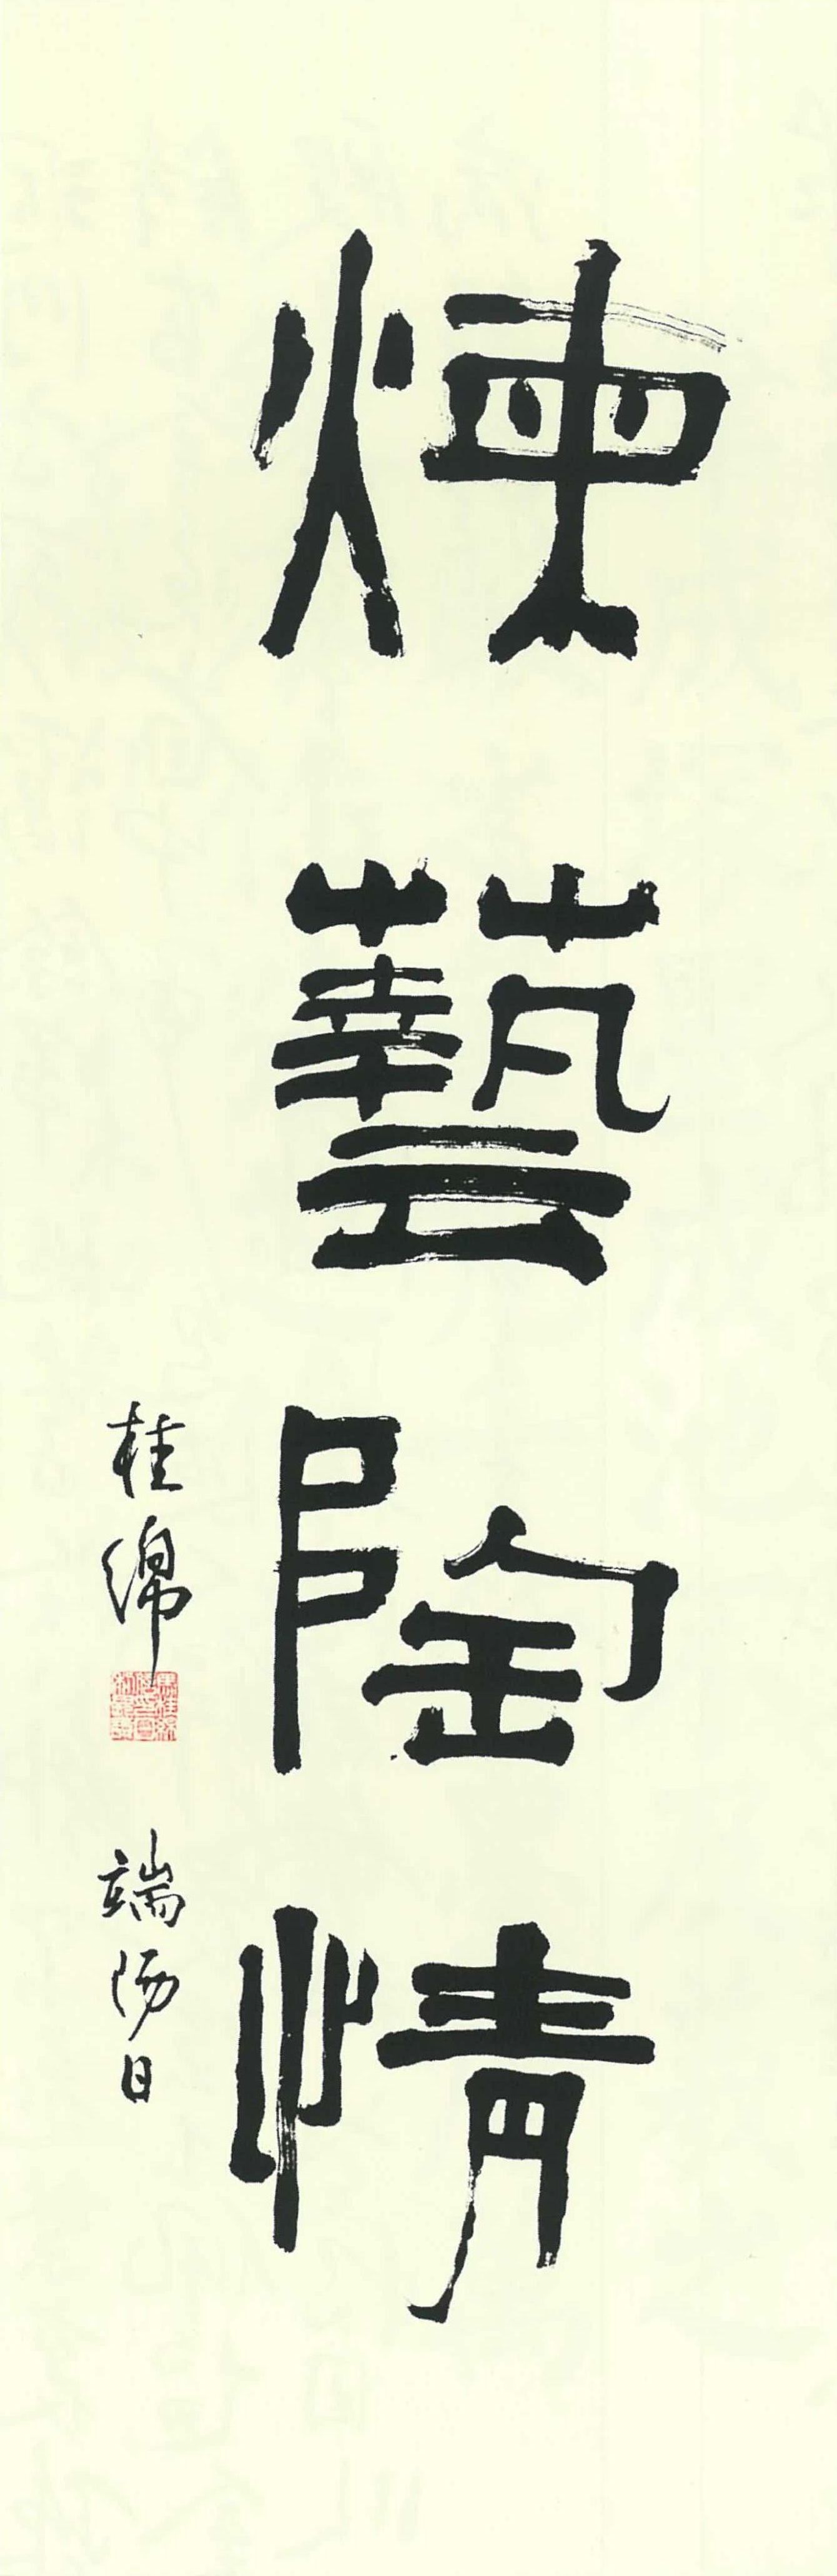 煉藝陶情
桂綿 端陽日